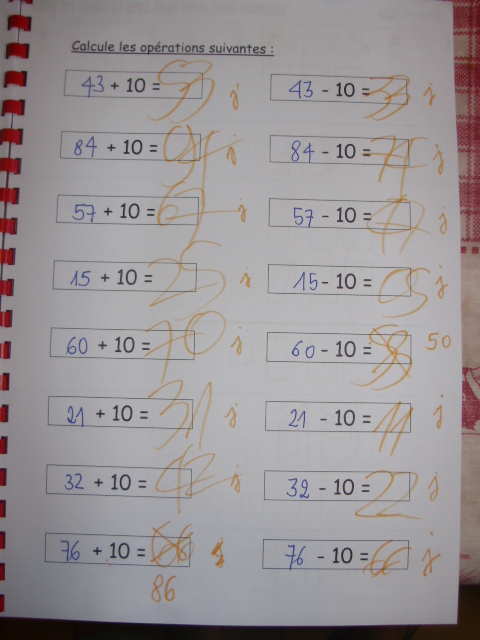 Calcule les opérations suivantes :
43 + 10 = 53 j 43 - 10 = 33 j
84 + 10 = 94 j 84 - 10 = 74 j
57 + 10 = 67 j 57 - 10 = 47 j
15 + 10 = 25 j 15 - 10 = 05 j
60 + 10 = 70 j 60 - 10 = 50
21 + 10 = 31 j 21 - 10 = 11 j
32 + 10 = 42 j 32 - 10 = 22 j
76 + 10 = 66 j 76 - 10 = 66 j
86